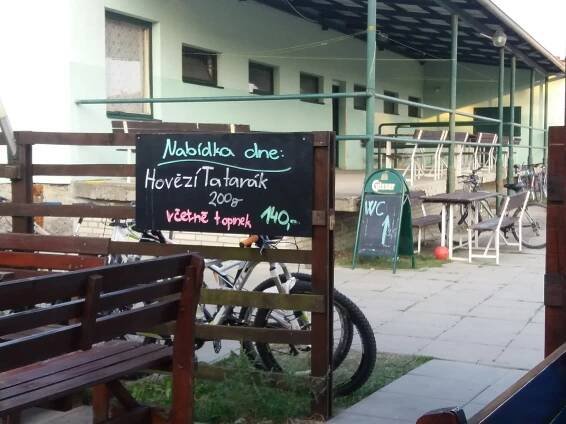 Nabídka dne:
Hovězí Tatarák
200g
včetně topnek 140,-
Gösser
WC